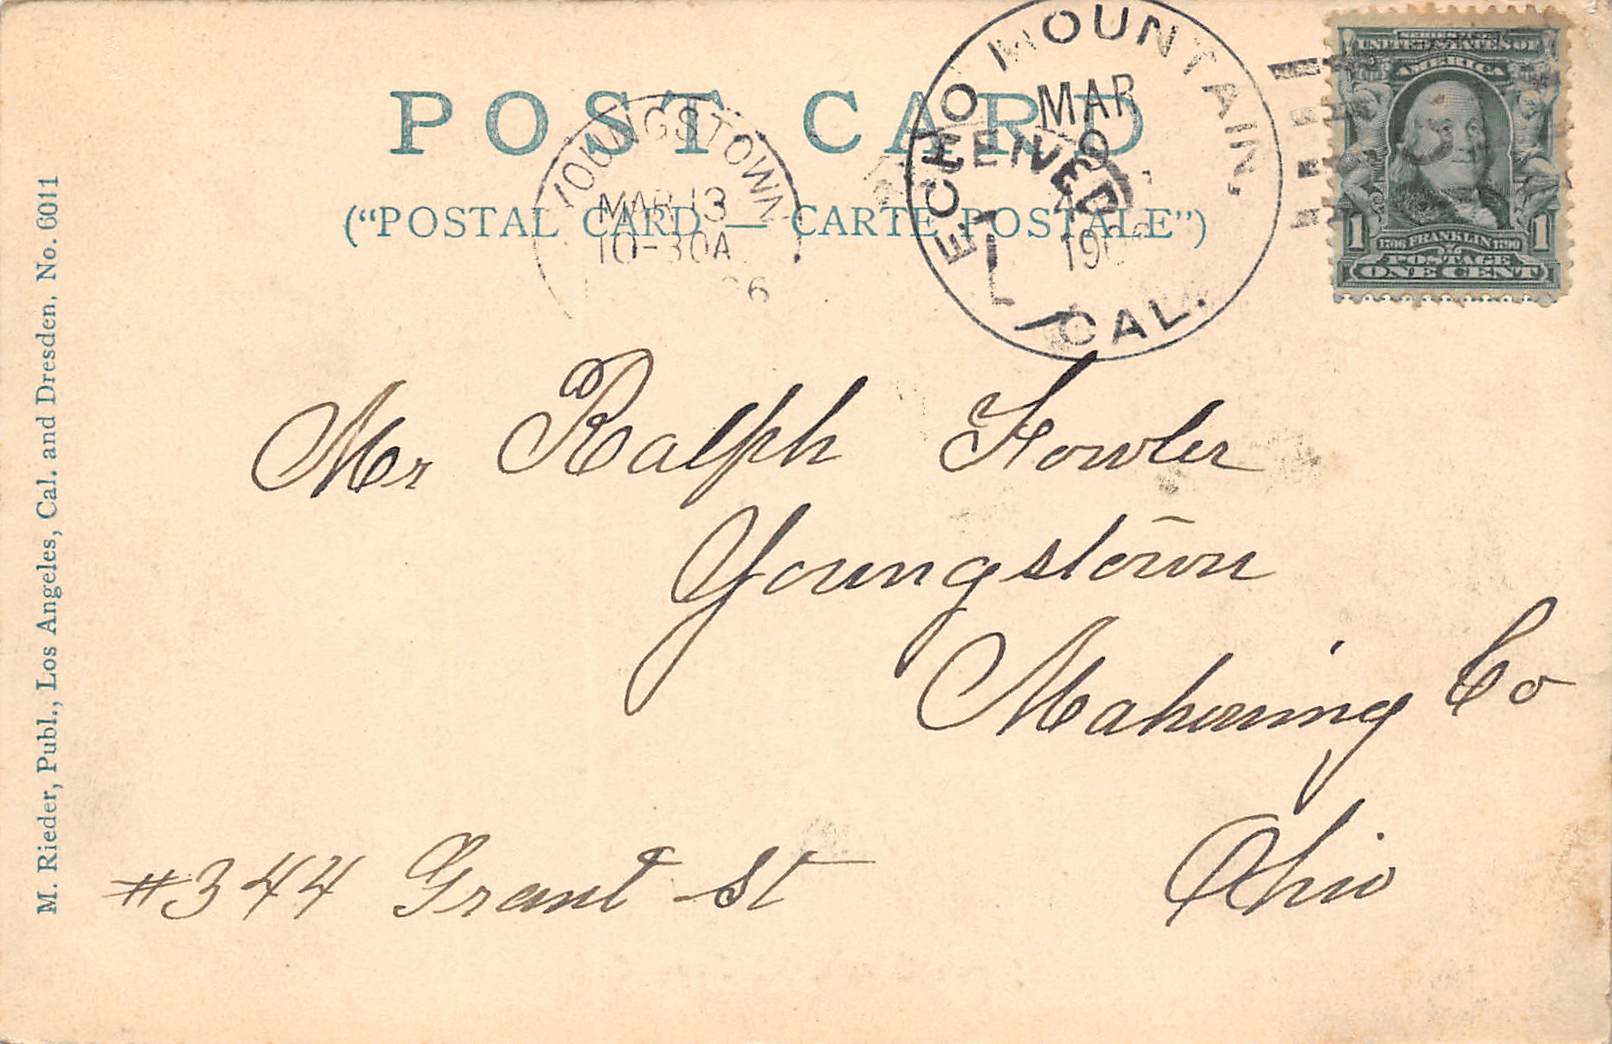 POST CARD
("POSTAL CARD — CARTE POSTALE")
YOUNGSTOWN
MAR 13
10-30A
ECHO MOUNTAIN,
MAR
CAL.
SERIES 1902
UNITED STATES OF
AMERICA
1 1706 FRANKLIN 1790 1
POSTAGE
ONE CENT
Mr Ralph Fowler
Youngstown
Mahoning Co
Ohio
#344 Grant St
M. Rieder, Publ., Los Angeles, Cal. and Dresden. No. 6011